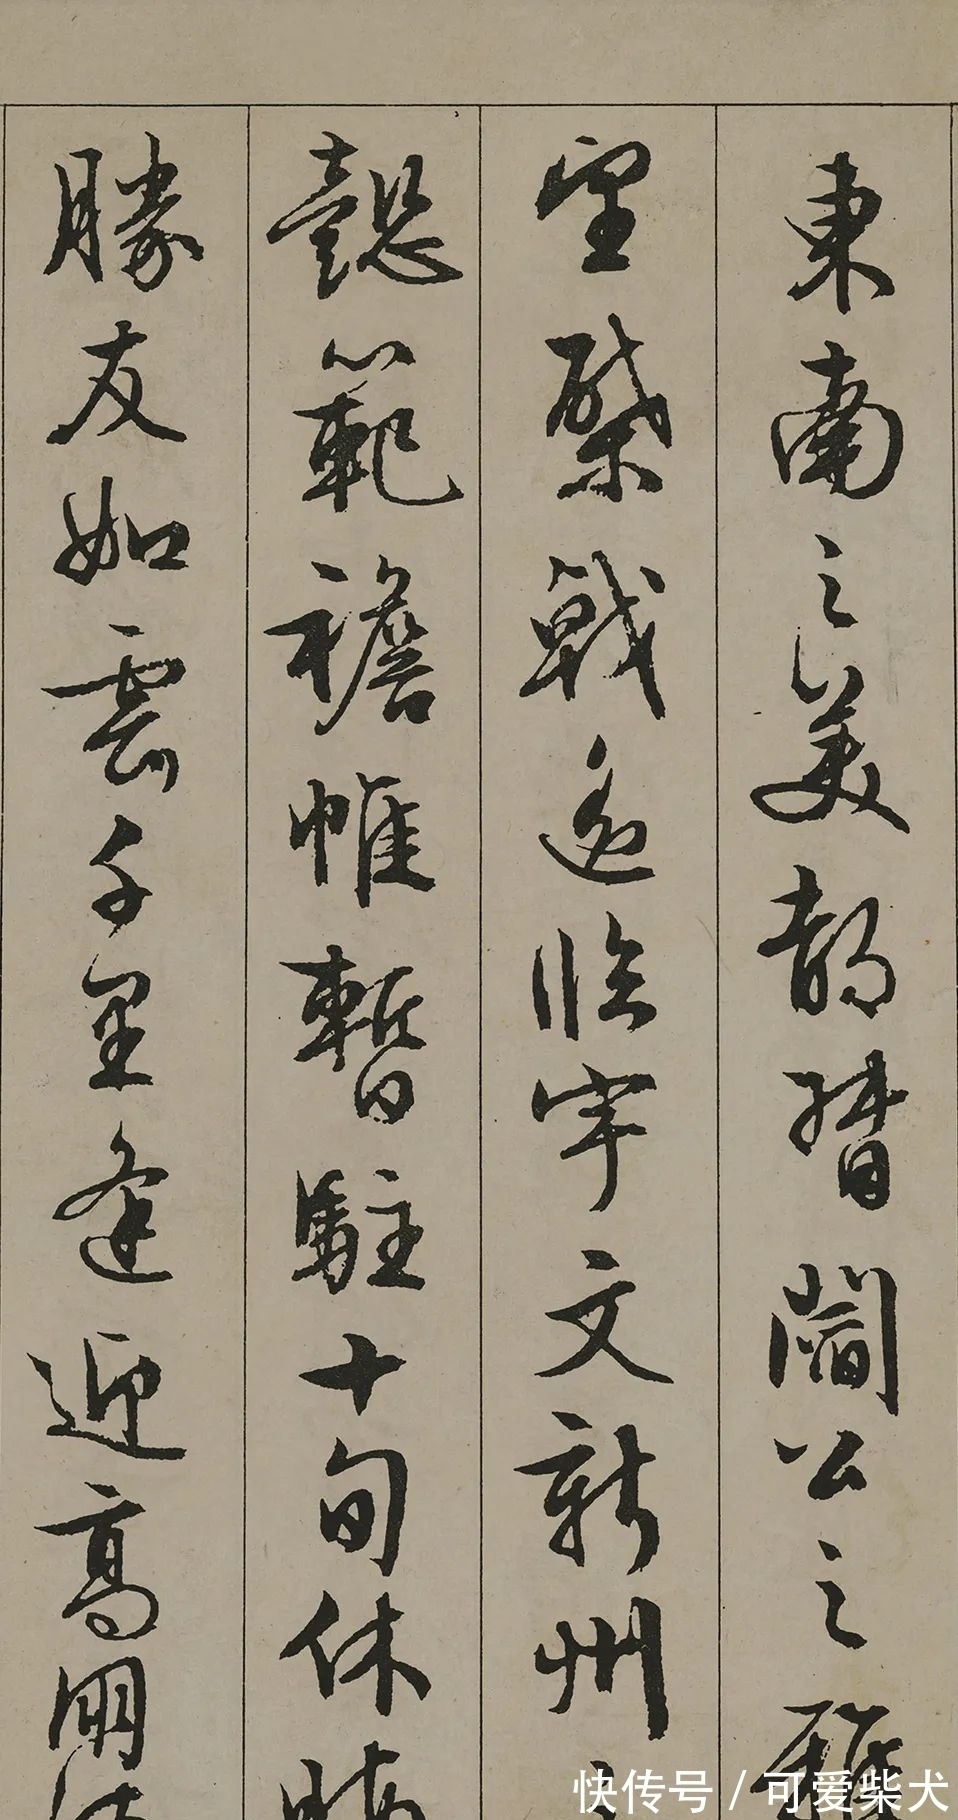 東南之美都督閻公之雅
望棨戟遥臨宇文新州
懿範襜帷暫駐十旬休
勝友如雲千里逢迎高朋
快传号 / 可爱柴犬